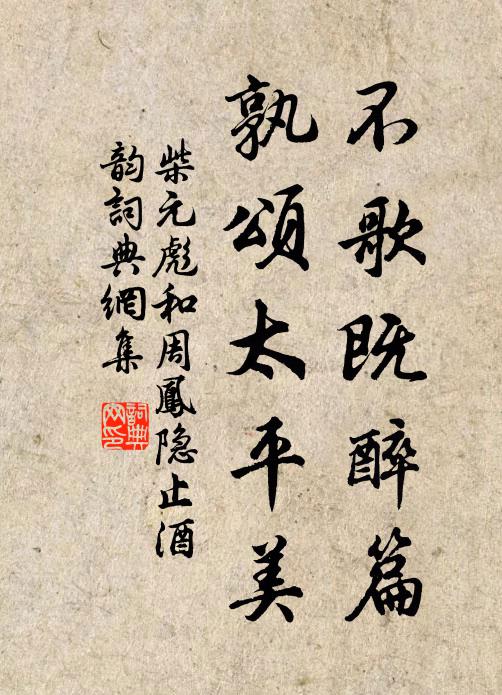 不歌既醉篇
孰頌太平美
柴元彪和周鳳隐止酒
韵詞典網集
詞典网印